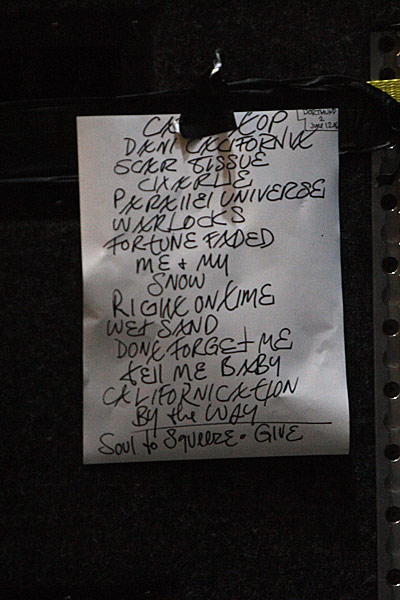 CA KOP
DANI CALIFORNIA
SCAR TISSUE
CHARLIE
PARALLEL UNIVERSE
WARLOCKS
FORTUNE FADED
ME + MY
SNOW
RIGHT ON TIME
WET SAND
DONT FORGET ME
tEll ME BABY
CALIFORNICATION
BY the WAY
Soul to SQUEEZE - GIVE